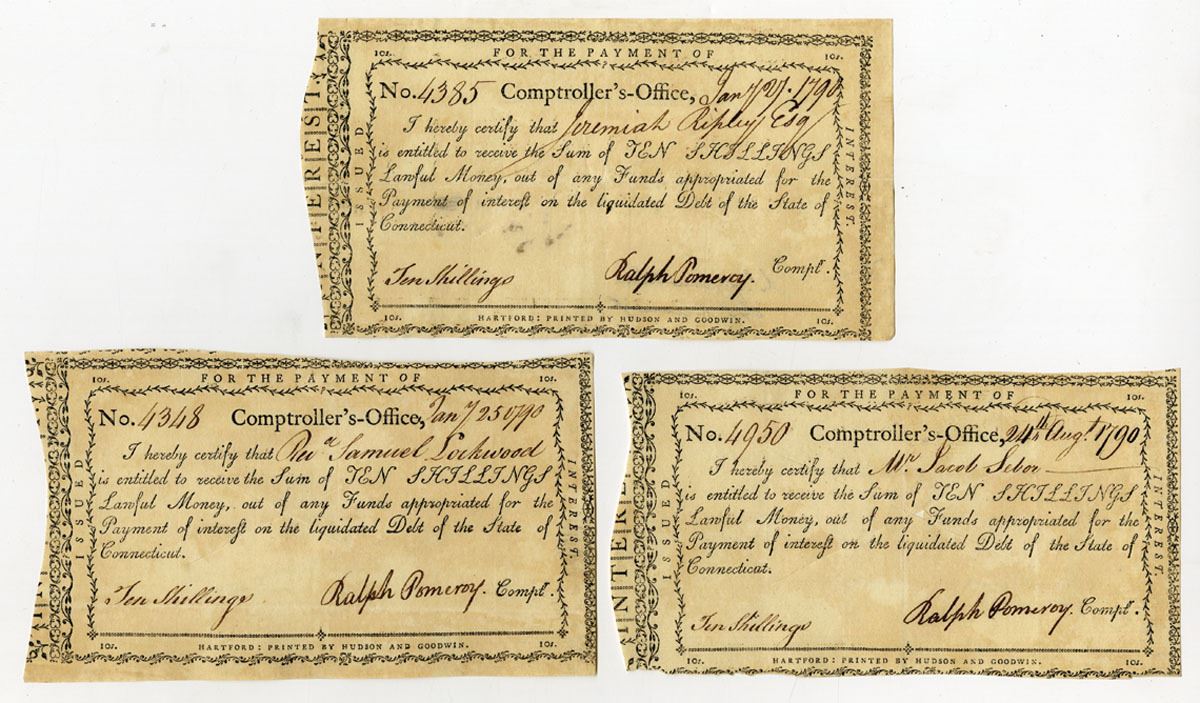 10s. FOR THE PAYMENT OF 10s.
INTEREST.
ISSUED
No. 4385 Comptroller's-Office, Jany 27. 1790
I hereby certify that Jeremiah Ripley Esq
is entitled to receive the Sum of TEN SHILLINGS
Lawful Money, out of any Funds appropriated for the
Payment of intereſt on the liquidated Debt of the State of
Connecticut.
Ten Shillings Ralph Pomeroy. Comptr.
INTEREST.
10s. HARTFORD: PRINTED BY HUDSON AND GOODWIN. 10s.
10s. FOR THE PAYMENT OF 10s.
ISSUED
No. 4348 Comptroller's-Office, Jany 25 1790
I hereby certify that Revd Samuel Lockwood
is entitled to receive the Sum of TEN SHILLINGS
Lawful Money, out of any Funds appropriated for the
Payment of intereſt on the liquidated Debt of the State of
Connecticut.
Ten Shillings Ralph Pomeroy. Comptr.
INTEREST.
10s. HARTFORD: PRINTED BY HUDSON AND GOODWIN. 10s.
10s. FOR THE PAYMENT OF 10s.
NTERE
ISSUED
No. 4950 Comptroller's-Office, 24th Augt. 1790
I hereby certify that Mr Jacob Sebor
is entitled to receive the Sum of TEN SHILLINGS
Lawful Money, out of any Funds appropriated for the
Payment of intereſt on the liquidated Debt of the State of
Connecticut.
Ten Shillings Ralph Pomeroy. Comptr.
INTEREST.
10s. HARTFORD: PRINTED BY HUDSON AND GOODWIN. 10s.